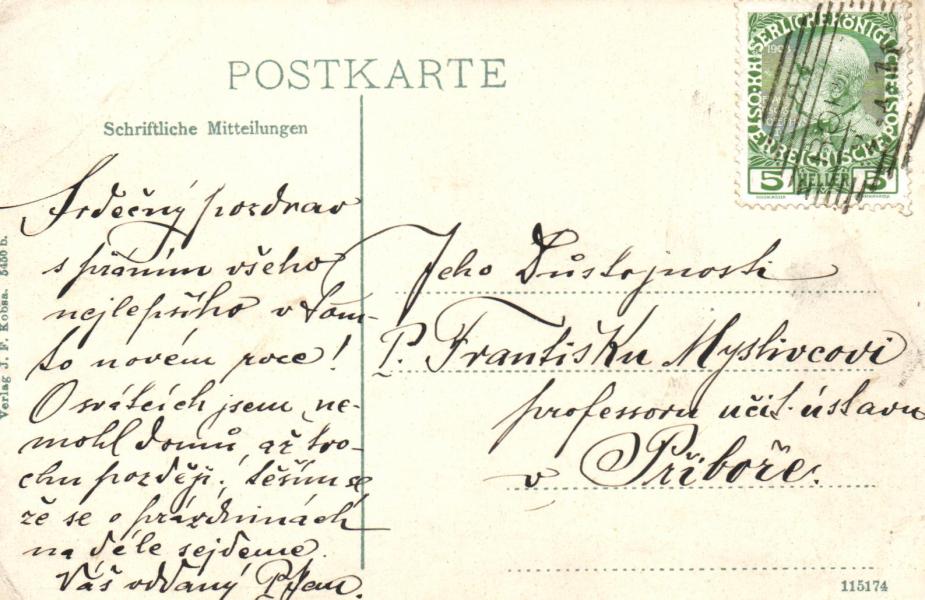 POSTKARTE
Schriftliche Mitteilungen
Srdečný pozdrav
s přáním všeho
nejlepšího v tom-
to novém roce!
O svátcích jsem ne-
mohl domů, až tro-
chu později; těším se
že se o prázdninách
na déle sejdeme.
Váš oddaný
Jeho Důstojnosti
P. Františku Myslivcovi
professoru učit. ústavu
v Příboře.
KAISERLICHE KÖNIGLICHE
ÖSTERREICHISCHE
1908
5 HELLER 5
Verlag J. F. Kobsa. 5450 b.
115174